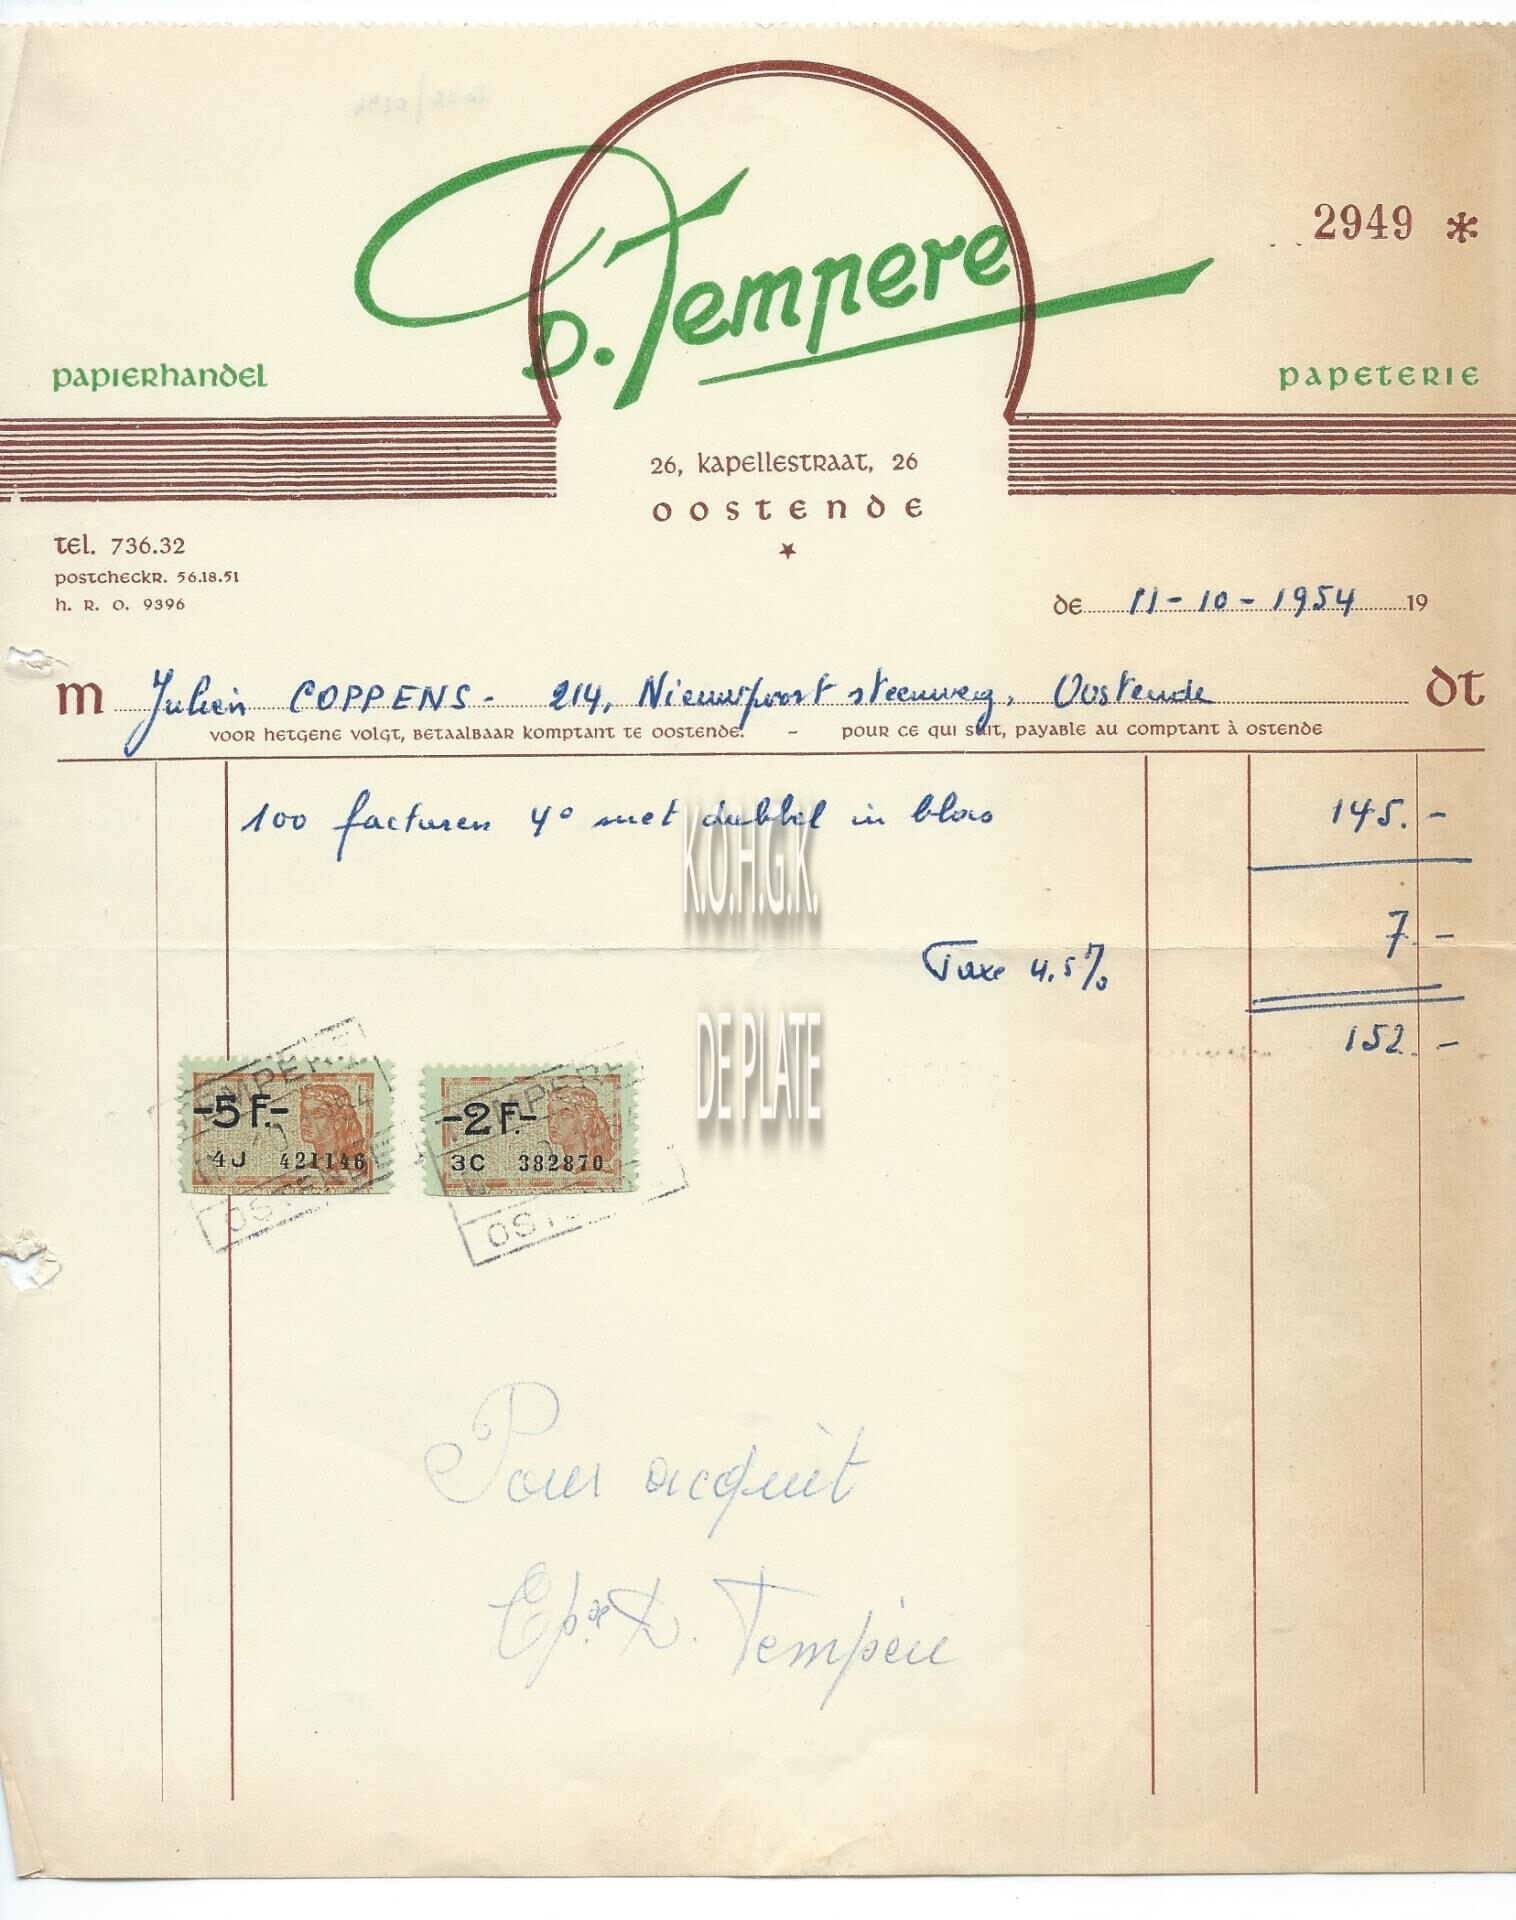 D. Tempere
2949 *
PAPIERHANDEL
PAPETERIE
26, KAPELLESTRAAT, 26
OOSTENDE
TEL. 736.32
POSTCHECKR. 56.18.51
H. R. O. 9396
DE 11-10-1954 19
M Julien COPPENS - 214, Nieuwpoortsteenweg, Oostende DT
VOOR HETGENE VOLGT, BETAALBAAR KOMPTANT TE OOSTENDE. - POUR CE QUI SUIT, PAYABLE AU COMPTANT À OSTENDE
100 facturen 4° met dubbel in bloc 145.-
K.O.H.G.K.
Taxe 4.5% 7.-
DE PLATE
152.-
TEMPERE
-5 F.-
4J 421146
OSTENDE
TEMPERE
-2 F.-
3C 382870
Pour acquit
Epse D. Tempère